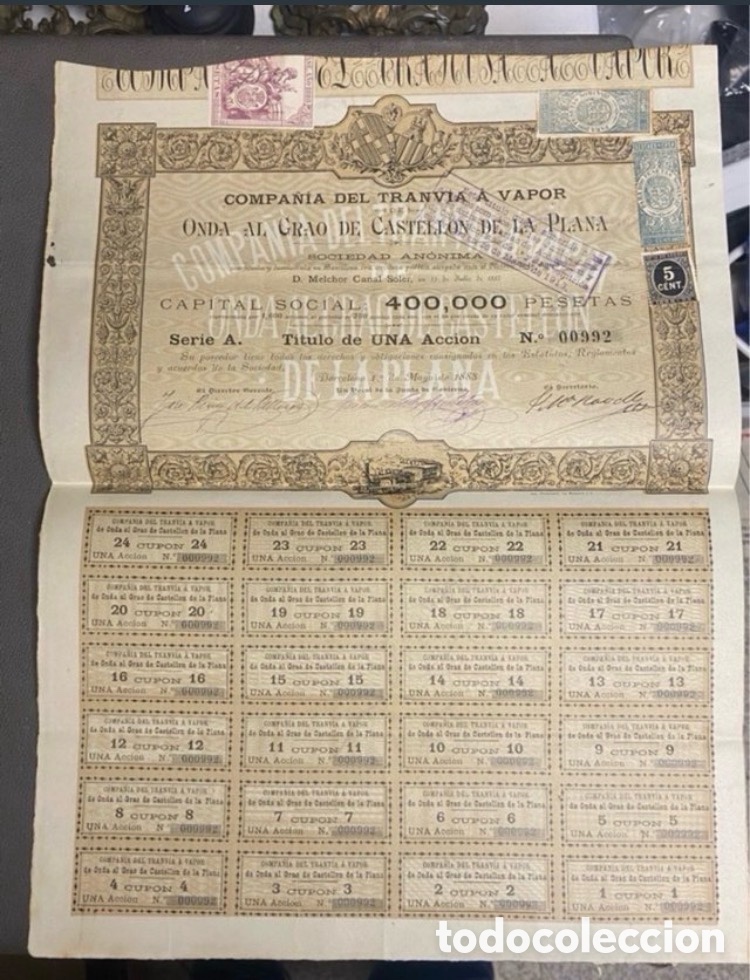 COMPAÑIA DEL TRANVIA A VAPOR
ONDA AL GRAO DE CASTELLON DE LA PLANA
SOCIEDAD ANÓNIMA
D. Melchor Canal Soler,
CAPITAL SOCIAL: 400,000 PESETAS
Serie A. Titulo de UNA Accion N.º 00992
Su poseedor tiene todos los derechos y obligaciones consignados en los Estatutos, Reglamentos
y acuerdos de la Sociedad.
Barcelona 1º de Mayo de 1888
El Director Gerente, Un Vocal de la Junta de Gobierno, El Secretario,
5
CENT.
COMPAÑIA DEL TRANVIA A VAPOR
de Onda al Grao de Castellon de la Plana
24 CUPON 24
UNA Accion N.º 000992
COMPAÑIA DEL TRANVIA A VAPOR
de Onda al Grao de Castellon de la Plana
23 CUPON 23
UNA Accion N.º 000992
COMPAÑIA DEL TRANVIA A VAPOR
de Onda al Grao de Castellon de la Plana
22 CUPON 22
UNA Accion N.º 000992
COMPAÑIA DEL TRANVIA A VAPOR
de Onda al Grao de Castellon de la Plana
21 CUPON 21
UNA Accion N.º 000992
COMPAÑIA DEL TRANVIA A VAPOR
de Onda al Grao de Castellon de la Plana
20 CUPON 20
UNA Accion N.º 000992
COMPAÑIA DEL TRANVIA A VAPOR
de Onda al Grao de Castellon de la Plana
19 CUPON 19
UNA Accion N.º 000992
COMPAÑIA DEL TRANVIA A VAPOR
de Onda al Grao de Castellon de la Plana
18 CUPON 18
UNA Accion N.º 000992
COMPAÑIA DEL TRANVIA A VAPOR
de Onda al Grao de Castellon de la Plana
17 CUPON 17
UNA Accion N.º 000992
COMPAÑIA DEL TRANVIA A VAPOR
de Onda al Grao de Castellon de la Plana
16 CUPON 16
UNA Accion N.º 000992
COMPAÑIA DEL TRANVIA A VAPOR
de Onda al Grao de Castellon de la Plana
15 CUPON 15
UNA Accion N.º 000992
COMPAÑIA DEL TRANVIA A VAPOR
de Onda al Grao de Castellon de la Plana
14 CUPON 14
UNA Accion N.º 000992
COMPAÑIA DEL TRANVIA A VAPOR
de Onda al Grao de Castellon de la Plana
13 CUPON 13
UNA Accion N.º 000992
COMPAÑIA DEL TRANVIA A VAPOR
de Onda al Grao de Castellon de la Plana
12 CUPON 12
UNA Accion N.º 000992
COMPAÑIA DEL TRANVIA A VAPOR
de Onda al Grao de Castellon de la Plana
11 CUPON 11
UNA Accion N.º 000992
COMPAÑIA DEL TRANVIA A VAPOR
de Onda al Grao de Castellon de la Plana
10 CUPON 10
UNA Accion N.º 000992
COMPAÑIA DEL TRANVIA A VAPOR
de Onda al Grao de Castellon de la Plana
9 CUPON 9
UNA Accion N.º 000992
COMPAÑIA DEL TRANVIA A VAPOR
de Onda al Grao de Castellon de la Plana
8 CUPON 8
UNA Accion N.º 000992
COMPAÑIA DEL TRANVIA A VAPOR
de Onda al Grao de Castellon de la Plana
7 CUPON 7
UNA Accion N.º 000992
COMPAÑIA DEL TRANVIA A VAPOR
de Onda al Grao de Castellon de la Plana
6 CUPON 6
UNA Accion N.º 000992
COMPAÑIA DEL TRANVIA A VAPOR
de Onda al Grao de Castellon de la Plana
5 CUPON 5
UNA Accion N.º 000992
COMPAÑIA DEL TRANVIA A VAPOR
de Onda al Grao de Castellon de la Plana
4 CUPON 4
UNA Accion N.º 000992
COMPAÑIA DEL TRANVIA A VAPOR
de Onda al Grao de Castellon de la Plana
3 CUPON 3
UNA Accion N.º 000992
COMPAÑIA DEL TRANVIA A VAPOR
de Onda al Grao de Castellon de la Plana
2 CUPON 2
UNA Accion N.º 000992
COMPAÑIA DEL TRANVIA A VAPOR
de Onda al Grao de Castellon de la Plana
1 CUPON 1
UNA Accion N.º 000992
todocoleccion.net